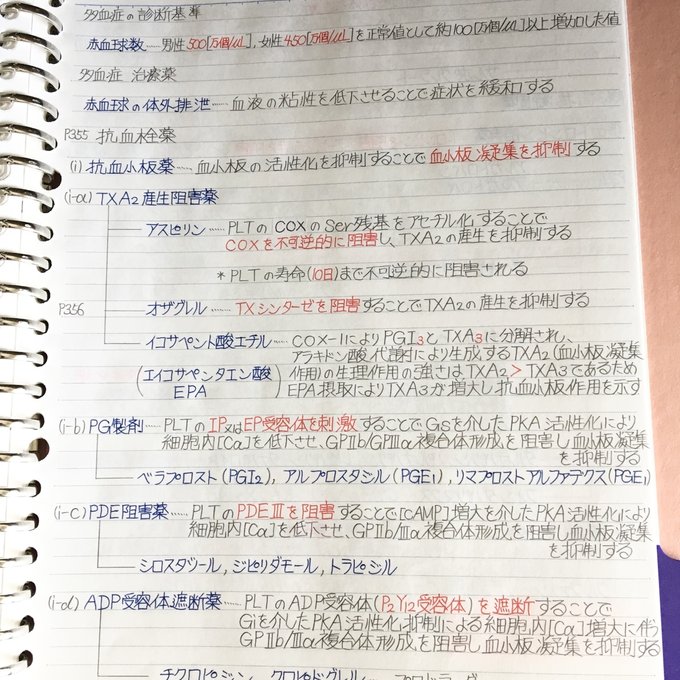 多血症の診断基準
赤血球数……男性500[万個/μL], 女性450[万個/μL]を正常値として約100[万個/μL]以上増加した値
多血症 治療薬
赤血球の体外排泄……血液の粘性を低下させることで症状を緩和する
P355 抗血栓薬
(i) 抗血小板薬……血小板の活性化を抑制することで血小板凝集を抑制する
(i-a) TXA2産生阻害薬
アスピリン……PLTのCOXのSer残基をアセチル化することで
COXを不可逆的に阻害し、TXA2の産生を抑制する
*PLTの寿命(10日)まで不可逆的に阻害される
P356 オザグレル……TXシンターゼを阻害することでTXA2の産生を抑制する
イコサペント酸エチル……COX-1によりPGI3とTXA3に分解され、
(エイコサペンタエン酸 EPA)
アラキドン酸代謝により生成するTXA2(血小板凝集
作用)の生理作用の強さはTXA2>TXA3であるため
EPA摂取によりTXA3が増大し抗血小板作用を示す
(i-b) PG製剤……PLTのIP又はEP受容体を刺激することでGsを介したPKA活性化により
細胞内[Ca]を低下させ、GPⅡb/GPⅢa複合体形成を阻害し血小板凝集
を抑制する
ベラプロスト(PGI2), アルプロスタジル(PGE1), リマプロストアルファデクス(PGE1)
(i-c) PDE阻害薬……PLTのPDEⅢを阻害することで[cAMP]増大を介したPKA活性化により
細胞内[Ca]を低下させ、GPⅡb/Ⅲa複合体形成を阻害し血小板凝集
を抑制する
シロスタゾール, ジピリダモール, トラピジル
(i-d) ADP受容体遮断薬……PLTのADP受容体(P2Y12受容体)を遮断することで
Giを介したPKA活性化抑制による細胞内[Ca]増大に伴う
GPⅡb/Ⅲa複合体形成を阻害し血小板凝集を抑制する
チクロピジン, クロピドグレル